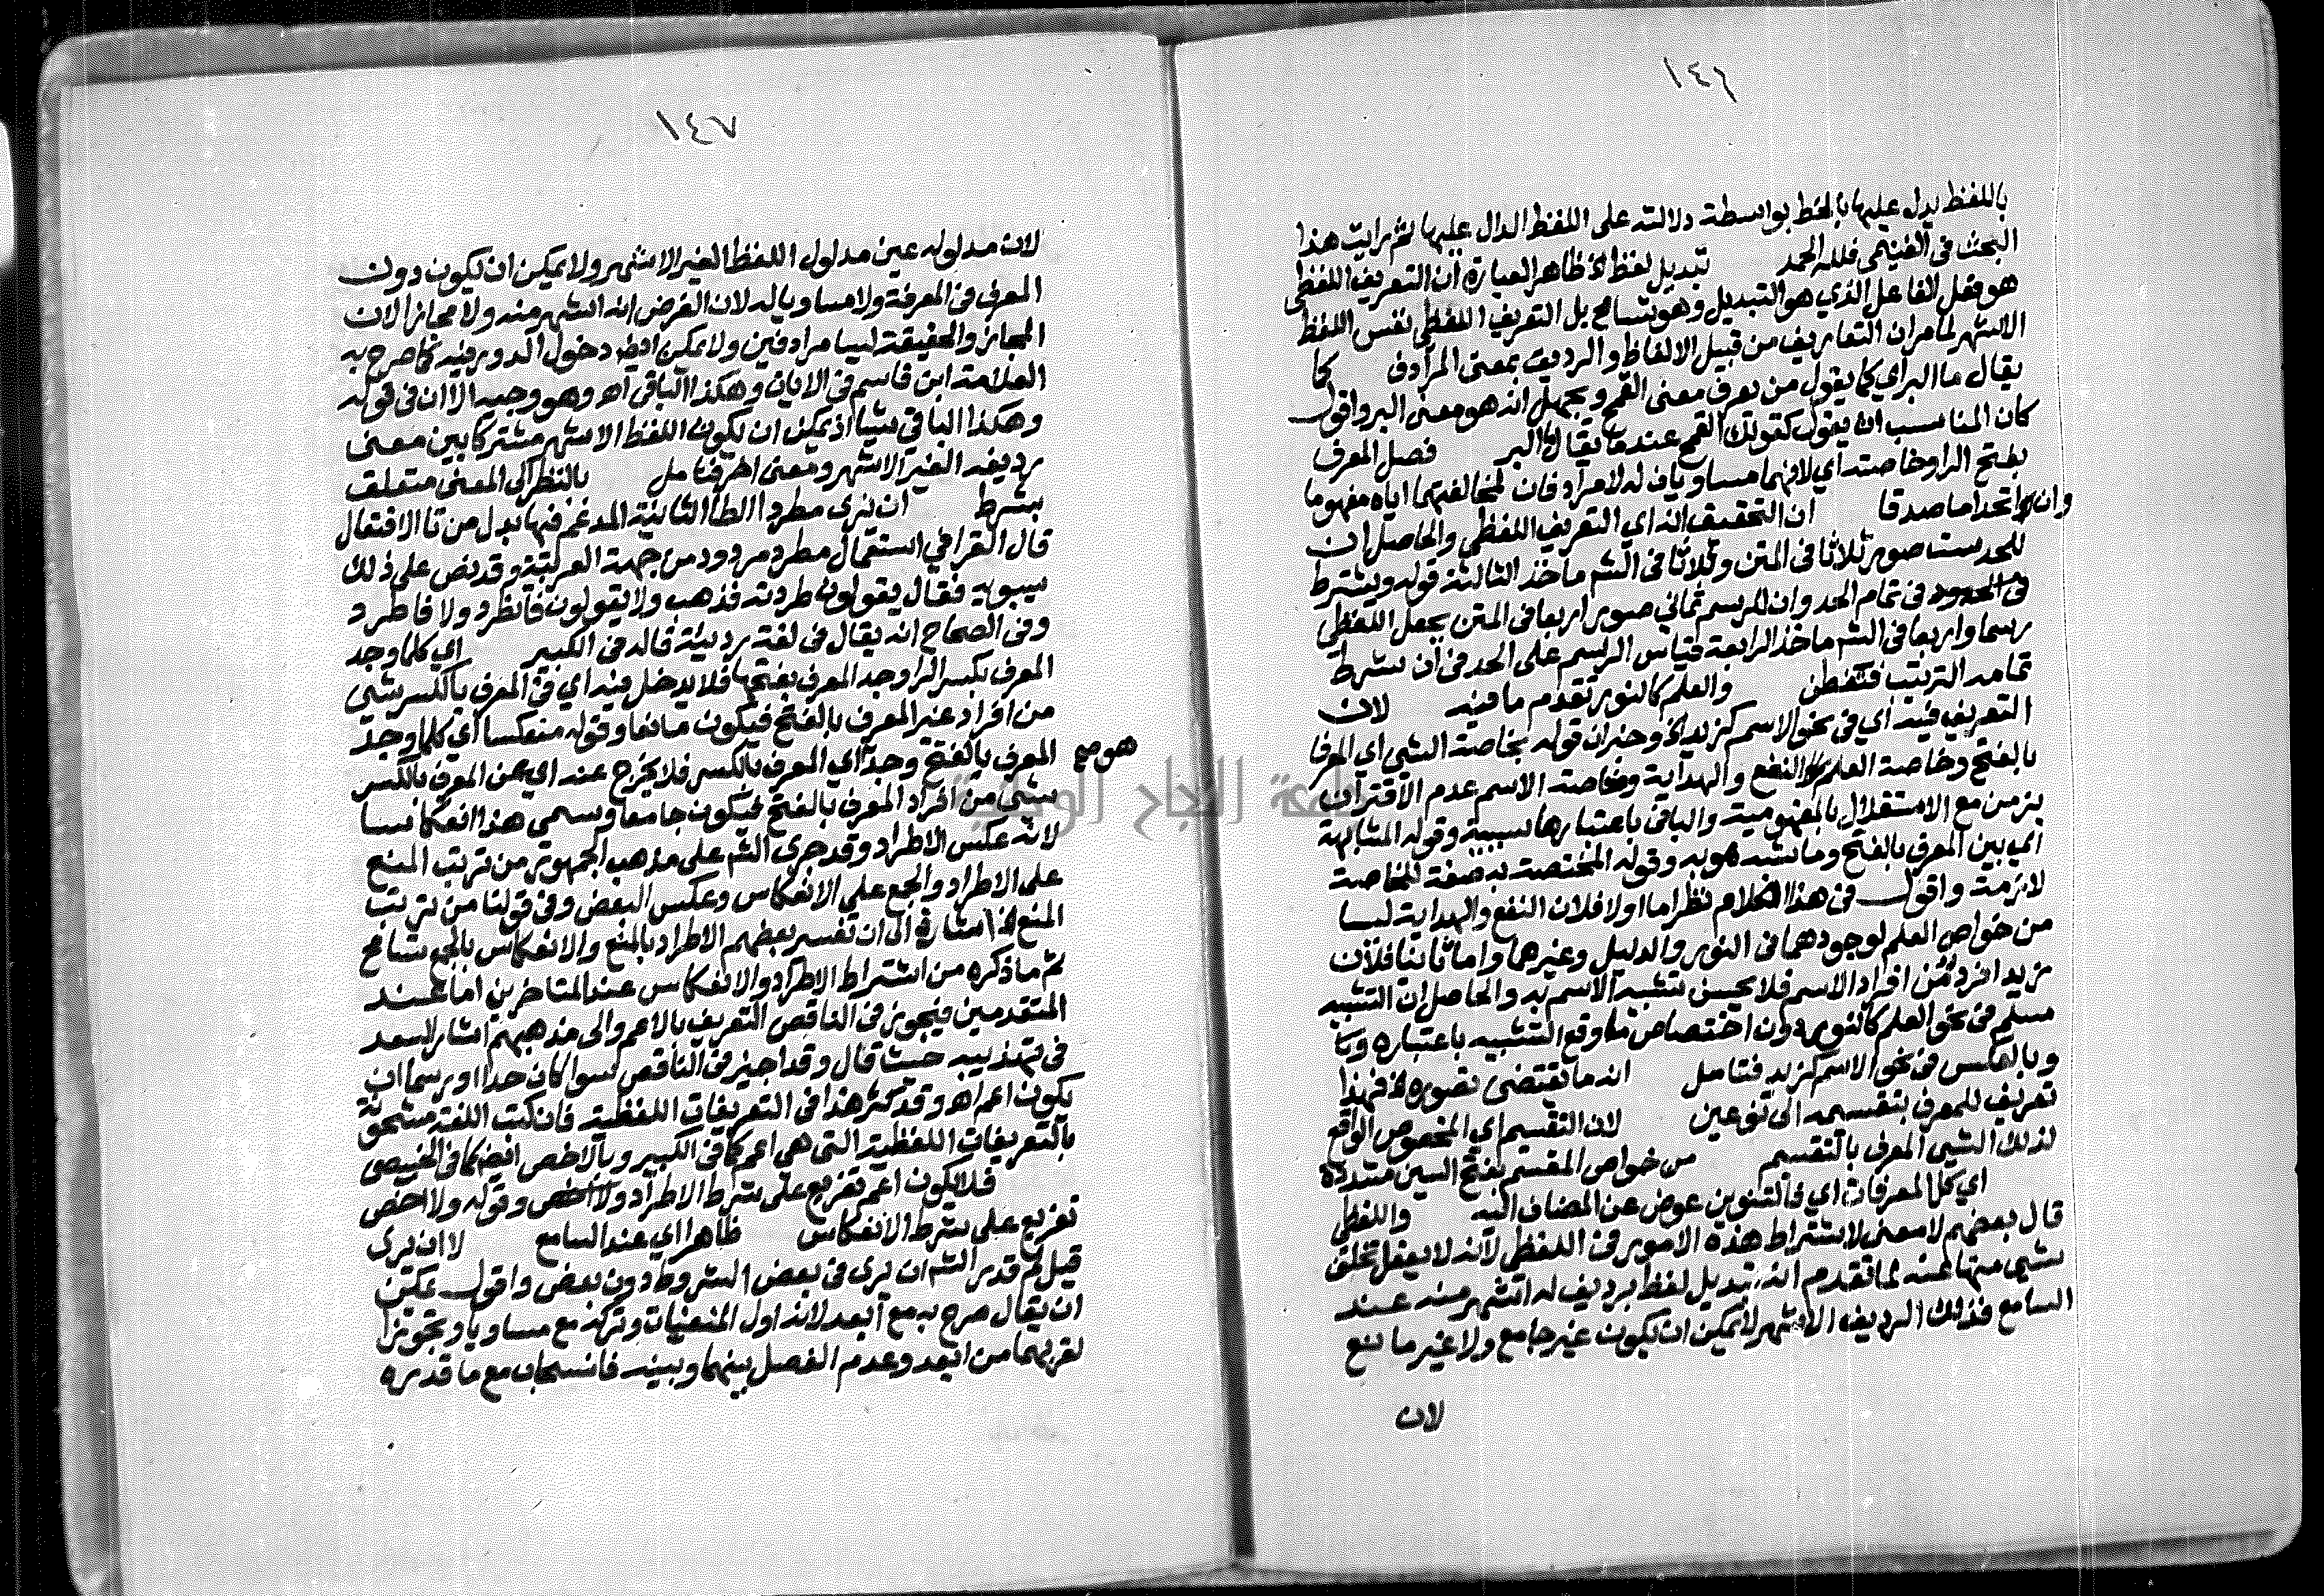 ١٤٦
باللفظ يدل عليها بالخط بواسطة دلالته على اللفظ الدال عليها ثم رايت هذا
البحث في الغنيمي فلله الحمد تبديل لفظ الخ ظاهر العبارة ان التعريف اللفظي
هو فعل الفاعل الذي هو التبديل وهو تسامح بل التعريف اللفظي نفس اللفظ
الاشهر لما مر ان التعاريف من قبيل الالفاظ والرديف بمعنى المرادف كما
يقال ما البر اي كما يقول من يعرف معنى القمح ويجهل انه هو معنى البر واقول
كان المناسب ان يقول كقولك القمح عندما يقال ما البر فصل المعرف
بفتح الرا وخاصته اي لانهما مساويان له لامراد فان لمخالفتهما اياه مفهوما
وان اتحدا ماصدقا ان التحقيق انه اي التعريف اللفظي والحاصل ان
للحد ست صور ثلاثا في المتن وثلاثا في الشم ماخذ الثالثة قوله ويشترط
في الحدود في تمام الحد وان للرسم ثماني صور اربعا في المتن بجعل اللفظي
رسما واربعا في الشم ماخذ الرابعة قياس الرسم على الحد في ان شرط
تمامه الترتيب فتفطن والعلم كالنور تقدم ما فيه لان
التعريف فيه اي في نحو الاسم كزيد الخ وخبر ان قوله بخاصة الشي اي المعرف
بالفتح وخاصة العلم النفع والهداية وخاصة الاسم عدم الاقتران
بزمن مع الاستقلال بالمفهومية والباقي باعتبارها سببية وقوله المشابهة
اي بين المعرف بالفتح وما شبه هو به وقوله المختصة به صفة للخاصة
لازمة واقول في هذا الكلام نظر اما اولا فلان النفع والهداية ليسا
من خواص العلم لوجودهما في النور والدليل وغيرهما واما ثانيا فلان
زيد افرد من افراد الاسم فلا يحسن تشبيه الاسم به والحاصل ان التشبيه
مسلم في نحو العلم كالنور دون اختصاص ما وقع التشبيه باعتباره وبا
وبالعكس في نحو الاسم كزيد فتامل انه ما يقتضي تصوره الخ فهذا
تعريف للمعرف بتقسيمه الى نوعين لان التقسيم اي المخصوص الواقع
لذلك الشي المعرف بالتقسيم من خواص المقسم بفتح السين مشددة
اي كل المعرفات اي فالتنوين عوض عن المضاف اليه واللفظي
قال بعضهم لا معنى لاشتراط هذه الامور في اللفظي لانه لا يعقل تخلف
شي منها عنه لما تقدم انه تبديل لفظ برديف له اشهر منه عند
السامع فذلك الرديف الاشهر لا يمكن ان يكون غير جامع ولا غير مانع
لان
١٤٧
لان مدلوله عين مدلول اللفظ الغير الاشهر ولا يمكن ان يكون دون
المعرف في المعرفة ولا مساويا له لان الفرض انه اشهر منه ولا مجازا لان
المجاز والحقيقة ليسا مرادفين ولا يمكن ايضا دخول الدور فيه كما صرح به
العلامة ابن قاسم في الايات وهكذا الباقي اه وهو وجيه الا ان في قوله
وهكذا الباقي شيا اذ يمكن ان يكون اللفظ الاشهر مشتركا بين معنى
رديفه الغير الاشهر ومعنى اخر فتامل بالنظر الى المعنى متعلق
بشرط ان يرى مطردا الطا الثانية المدغم فيها بدل من تا الافتعال
قال القرافي استعمال مطرد مردود من جهة العربية وقد نص على ذلك
سيبويه فقال يقولون طردته فذهب ولا يقولون فانطرد ولا فاطرد
وفي الصحاح انه يقال في لغة رديئة قاله في الكبير اي كلما وجد
المعرف بكسر الرا وجد المعرف بفتحها فلا يدخل فيه اي في المعرف بالكسر شي
من افراد غير المعرف بالفتح فيكون مانعا وقوله منعكسا اي كلما وجد
المعرف بالفتح وجد اي المعرف بالكسر فلا يخرج عنه اي عن المعرف بالكسر
هو صح
شي من افراد المعرف بالفتح فيكون جامعا وسمي هذا انعكاسا
لانه عكس الاطراد وقد جرى الشم على مذهب الجمهور من ترتب المنع
على الاطراد والجمع على الانعكاس وعكس البعض وفي قولنا من ترتب
المنع الخ اشارة الى ان تفسير بعضهم الاطراد بالمنع والانعكاس بالجمع تسامح
ثم ما ذكره من اشتراط الاطراد والانعكاس عند المتاخرين اما عند
المتقدمين فيجوز في الناقص التعريف بالاعم والى مذهبهم اشار السعد
في تهذيبه حيث قال وقد اجيز في الناقص سوا كان حدا او رسما ان
يكون اعم اه وقد كثر هذا في التعريفات اللفظية فان كتب اللغة مشحونة
بالتعريفات اللفظية التي هي اعم كما في الكبير وبالاخص ايضا كما في الخبيصي
فلا يكون اعم تفريع على شرط الاطراد وقوله ولا اخص
تفريع على شرط الانعكاس ظاهرا اي عند السامع لا ان يرى
قيل لم قدر الشم ان يرى في بعض الشروط دون بعض واقول يمكن
ان يقال صرح به مع ابعد لانه اول المنفيات وتركه مع مساويا وتجوزا
لقربهما من ابعد وعدم الفصل بينهما وبينه فانسحاب مع ما قدره